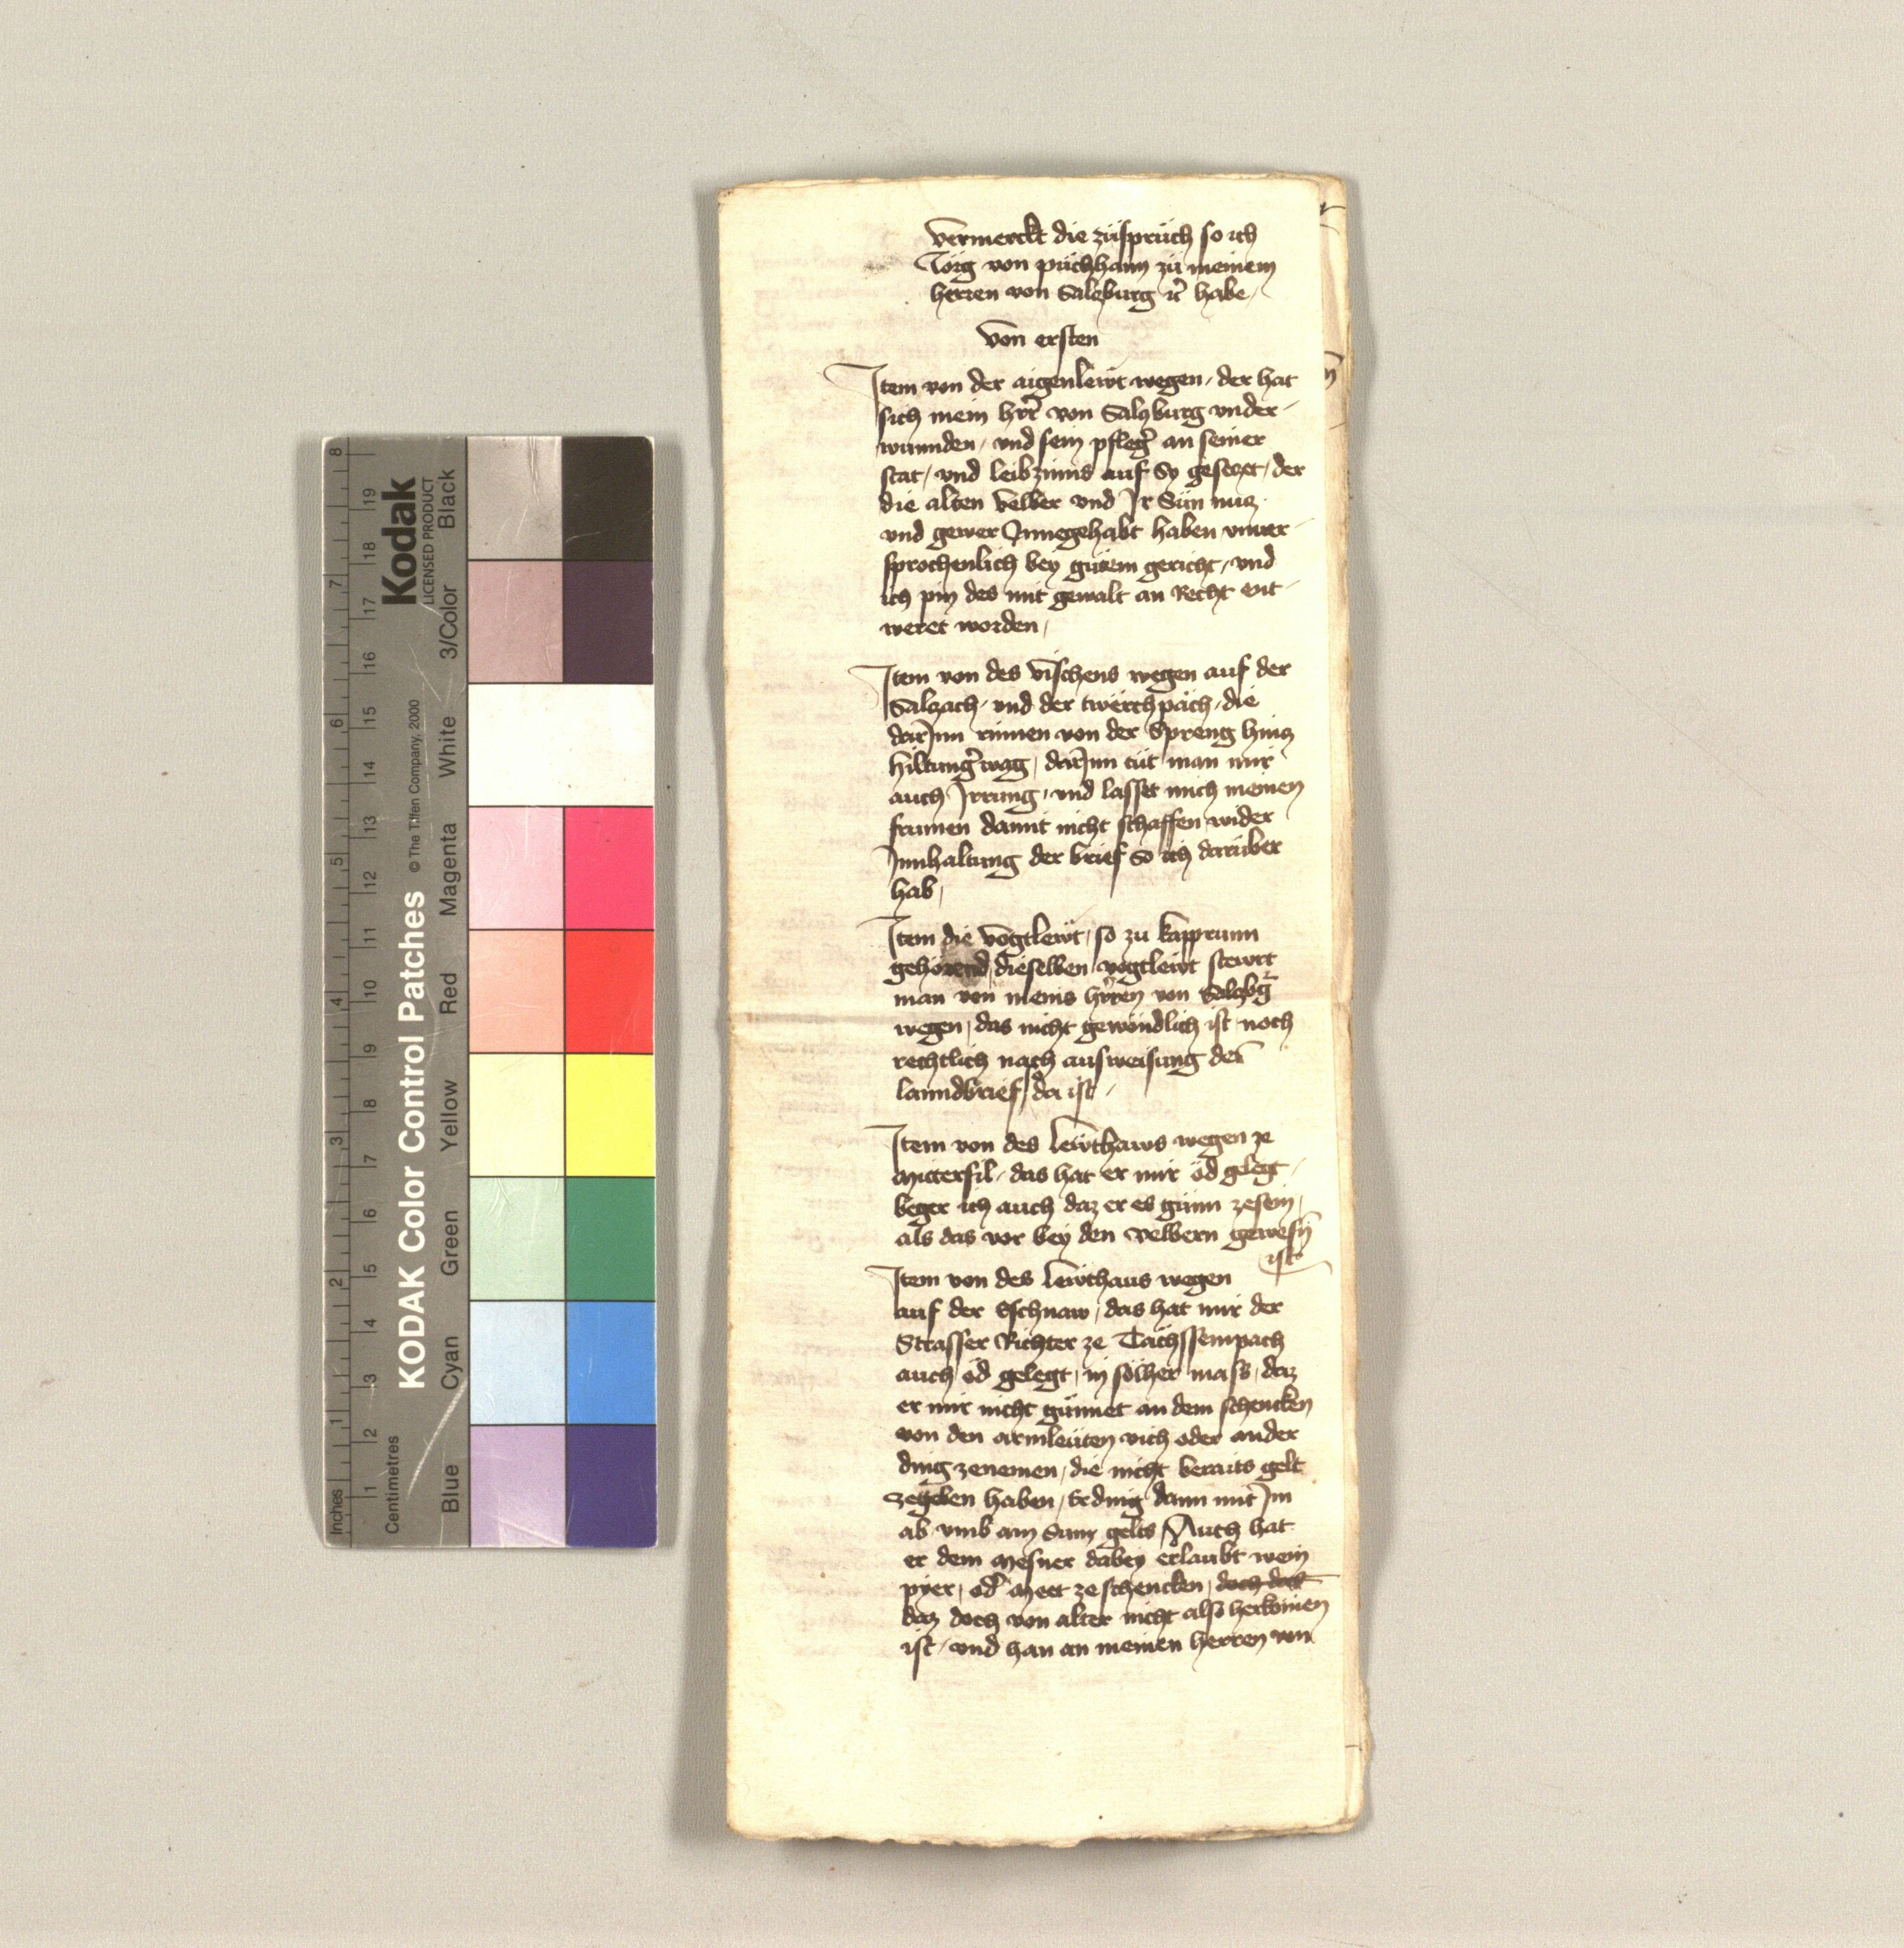 Kodak
LICENSED PRODUCT
KODAK Color Control Patches
© The Tiffen Company, 2000
Black
3/Color
White
Magenta
Red
Yellow
Green
Cyan
Blue
Inches
1
2
3
4
5
6
7
8
Centimetres
1
2
3
4
5
6
7
8
9
10
11
12
13
14
15
16
17
18
19
vermerckt die züsprüch so ich
Jörg von püchhaim zü meinem
herren von Salczburg habe
von ersten
Item von der aigenlewt wegen der hat
sich mein her von Salczburg vnder
wunnden vnd sein pfleger an seiner
stat vnd leibzinns auf Sy geseczt der
die alten velber vnd Ir Sün nucz
vnd gewer Innegehabt haben vnuer
sprochenlich bey gütem gericht vnd
ich pin des mit gewalt an Recht ent
weret worden
Item von des vischens wegen auf der
Salczach vnd der twerchpäch die
darInn rinnen von der Spreng hincz
darInn tüt man mir
auch Irrung vnd lasset mich meinen
frumen damit nicht schaffen wider
Innhaltung der brief So ich darüber
hab
Item die vogtlewt so zu kapprunn
gehörend dieselben vogtlewt stewrt
man von meins herren von Salczbg
wegen das nicht gewöndlich ist noch
rechtlich nach ausweisung der
lanndbrief da ist
Item von des lewthaws wegen ze
Mittersil das hat er mir öd gelegt
beger ich auch daz er es günn zesein
als das vor bey den velbern gewesn
ist
Item von des lewthaus wegen
auf der das hat mir der
Strasser Richter ze Tächssempach
auch öd gelegt in sölher mass daz
er mir nicht günnet an dem schencken
von den armleüten vich oder ander
ding zenemen die nicht beraits gelt
zegeben haben Er ding dann mit Im
ab vmb ain Sum gelts Auch hat
er dem Mesner dabey erlaubt wein
pyer od Mett ze schencken doch das
daz doch von alter nicht also herkomen
ist vnd han an meinen herren von